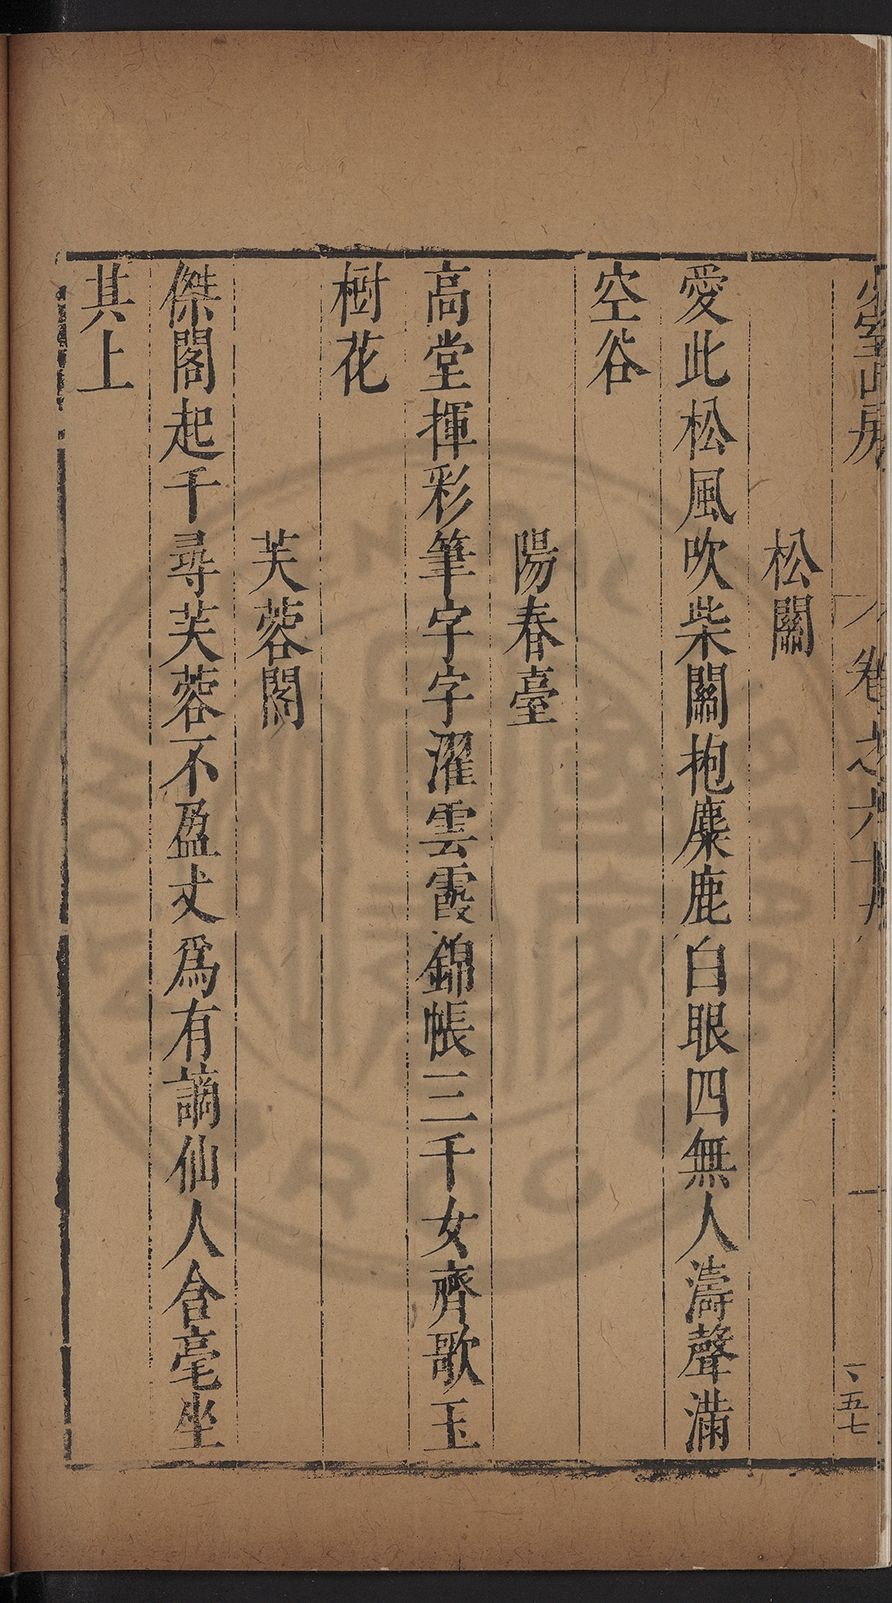 松關
愛此松風吹柴關抱麋鹿白眼四無人濤聲滿
空谷
陽春臺
高堂揮彩筆字字濯雲霞錦帳三千女齊歌玉
樹花
芙蓉閣
傑閣起千尋芙蓉不盈丈爲有謫仙人含毫坐
其上
卷之六十
五七